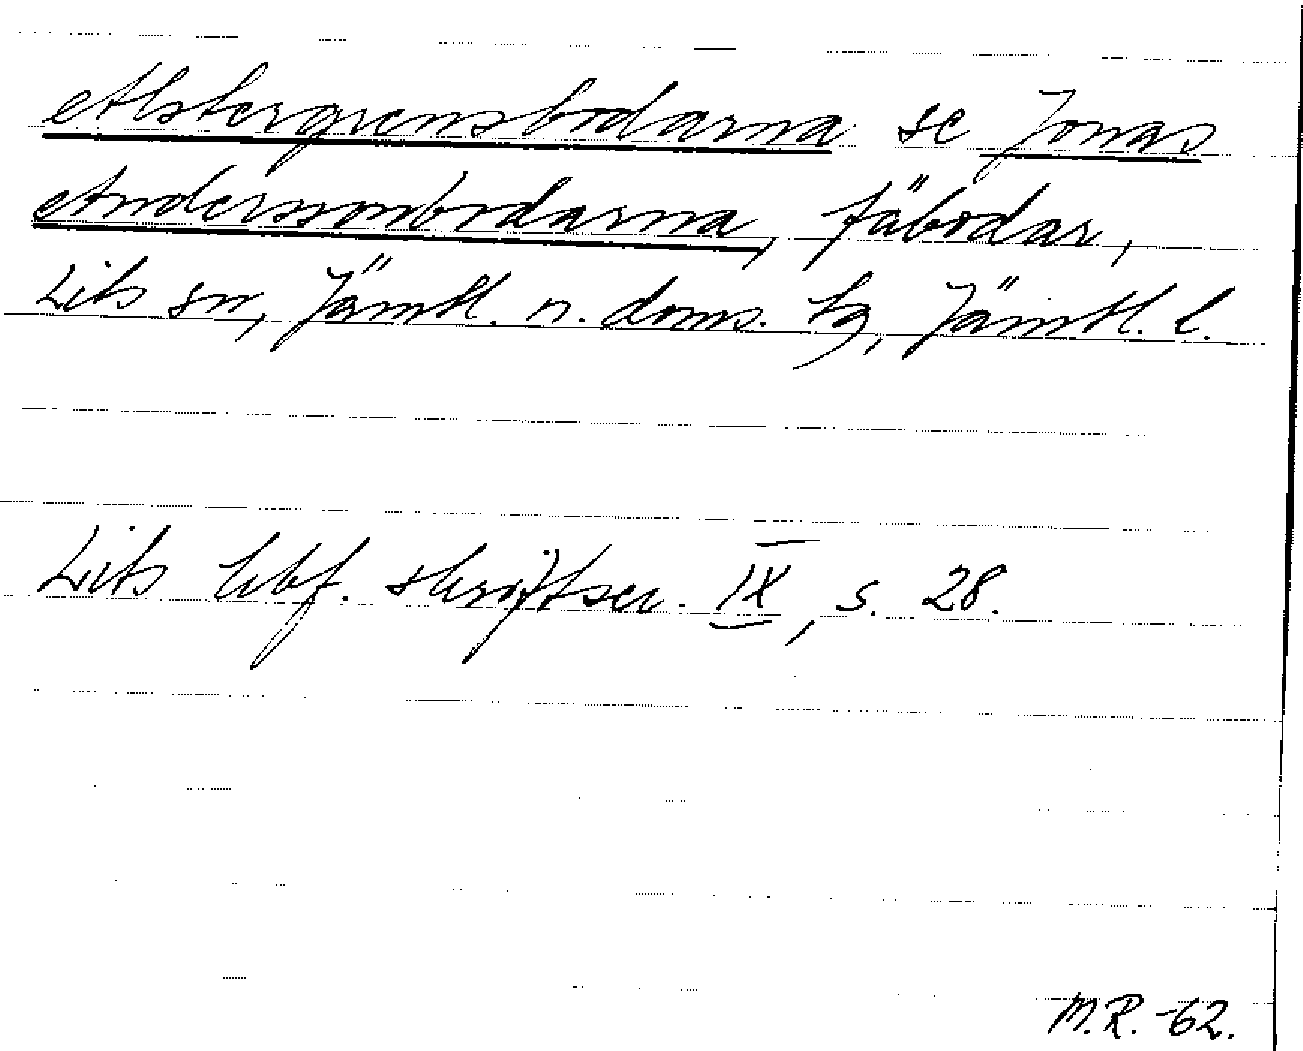 Alstergrensbodarna se Jonas
Anderssonbodarna, fäbodar,
Lits sn, Jämtl. n. doms. tg, Jämtl. l.
Lits hbf. skriftser. IX, s. 28.
M.R. -62.